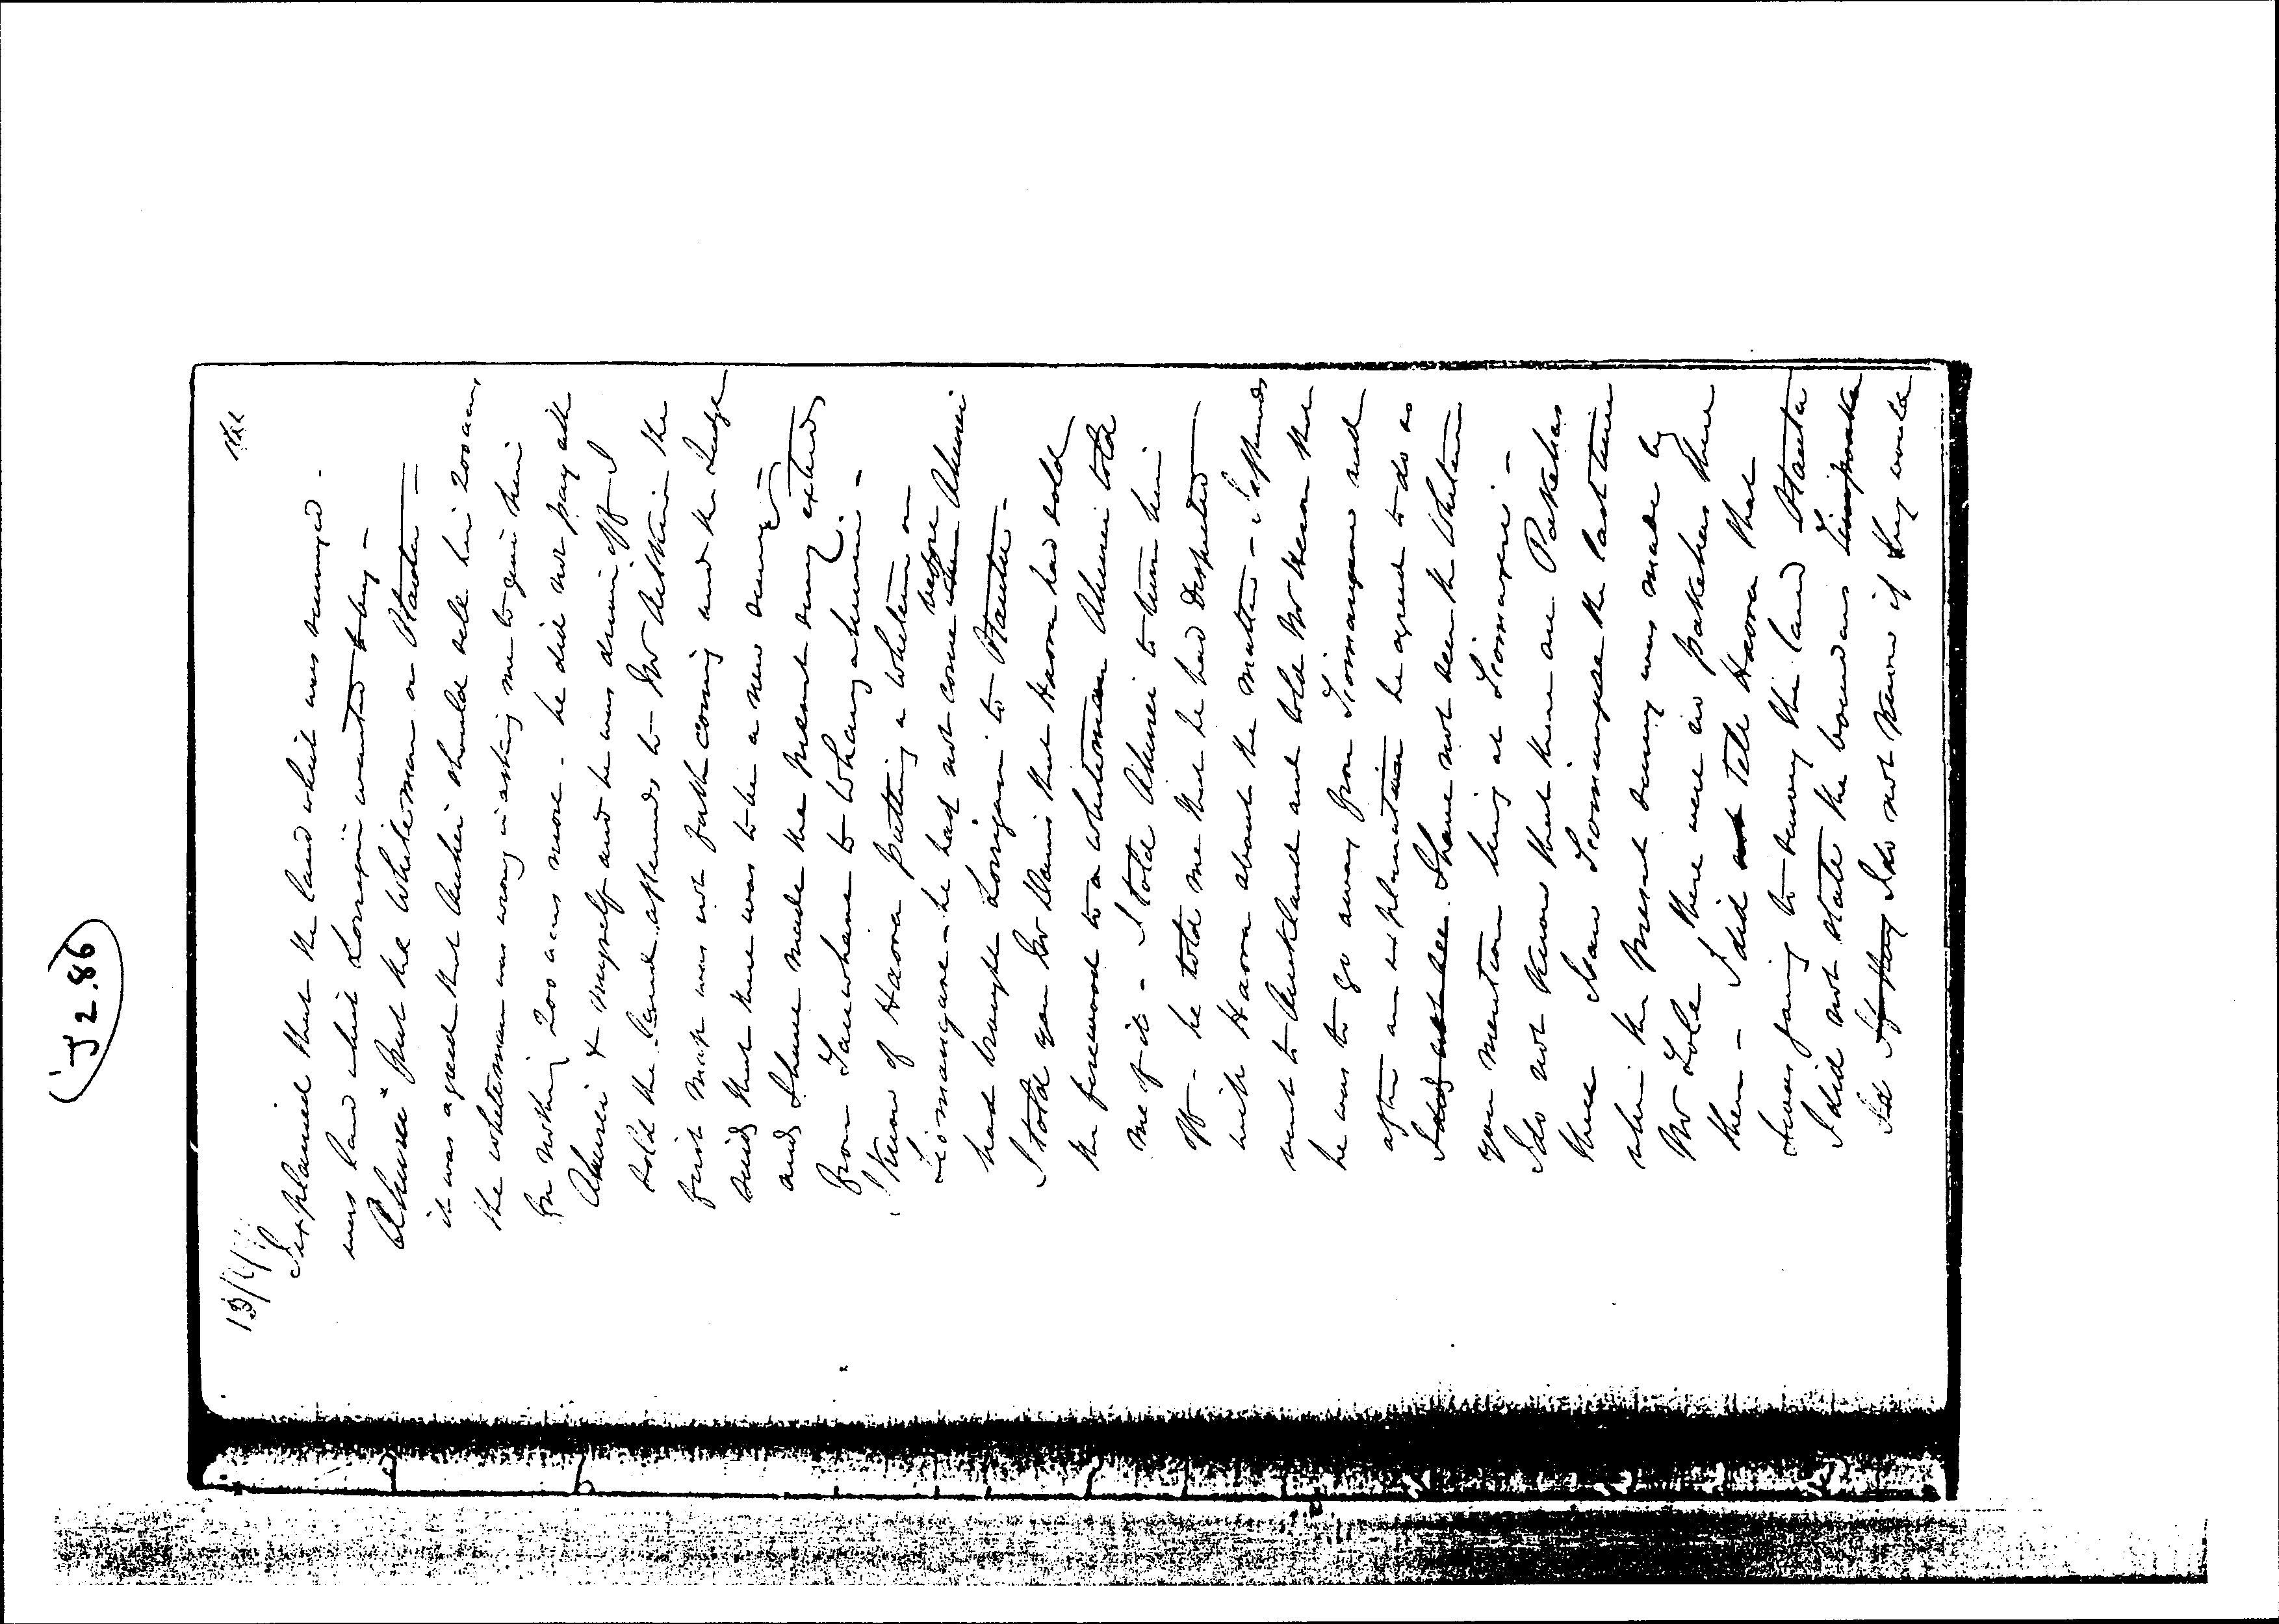 J 2.86
13/4/
I explained that the land which was surveyed -
was land which Lorigan wanted to buy -
Ahurei put the whiteman on Otautu -
it was agreed that Aubrei should sell him 200 acres
the whiteman was wrong in asking me to give him
for nothing 200 acres more - he did not pay all
Ahurei & myself and he was driven off I
sold the land afterwards to Mr Aitkin the
first map was not forthcoming and the Judge
said that there was to be a new survey
and I have made the present survey extends
from Tauwhare to Whangahurei -
I know of Haora putting a whiteman on
Tiomangare - he had not come when before Ahurei
had brought Lorigan to Otautu -
I told you Mr Davis that Haora had sold
the firewood to a whiteman Ahurei told
me of it - I told Ahurei to turn him
off - he told me that he had disputed
with Haora about the matter - I afterwards
went to Auckland and told Mr that
he was to go away from Tiomangare and
after an explanation he agreed to do so
I did not see I have not seen the whiteman
you mention living at Tiomangare -
I do not know that there are Pakehas
there I saw Tiomangare the last time
when the present survey was made by
Mr Tole, there were no pakehas there
then - I did not tell Haora that
I was going to survey the land Otautu
I did not state the boundaries
If they I do not know if they would